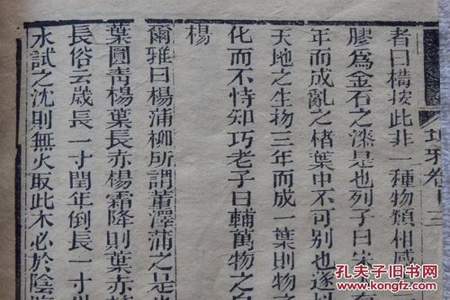 雅卷十三
者曰構按此非一種物類相感
膠為金石之漆是也列子曰宋人
年而成亂之楮葉中不可別也遂
天地之生物三年而成一葉則物
化而不恃知巧老子曰輔萬物之自
楊
爾雅曰楊蒲柳所謂董澤蒲之是也
葉圓青楊葉長赤楊霜降則葉赤
長俗云歲長一寸閏年倒長一寸
水試之沈則無火取此木必於陰
孔夫子旧书网
KONGFZ.COM